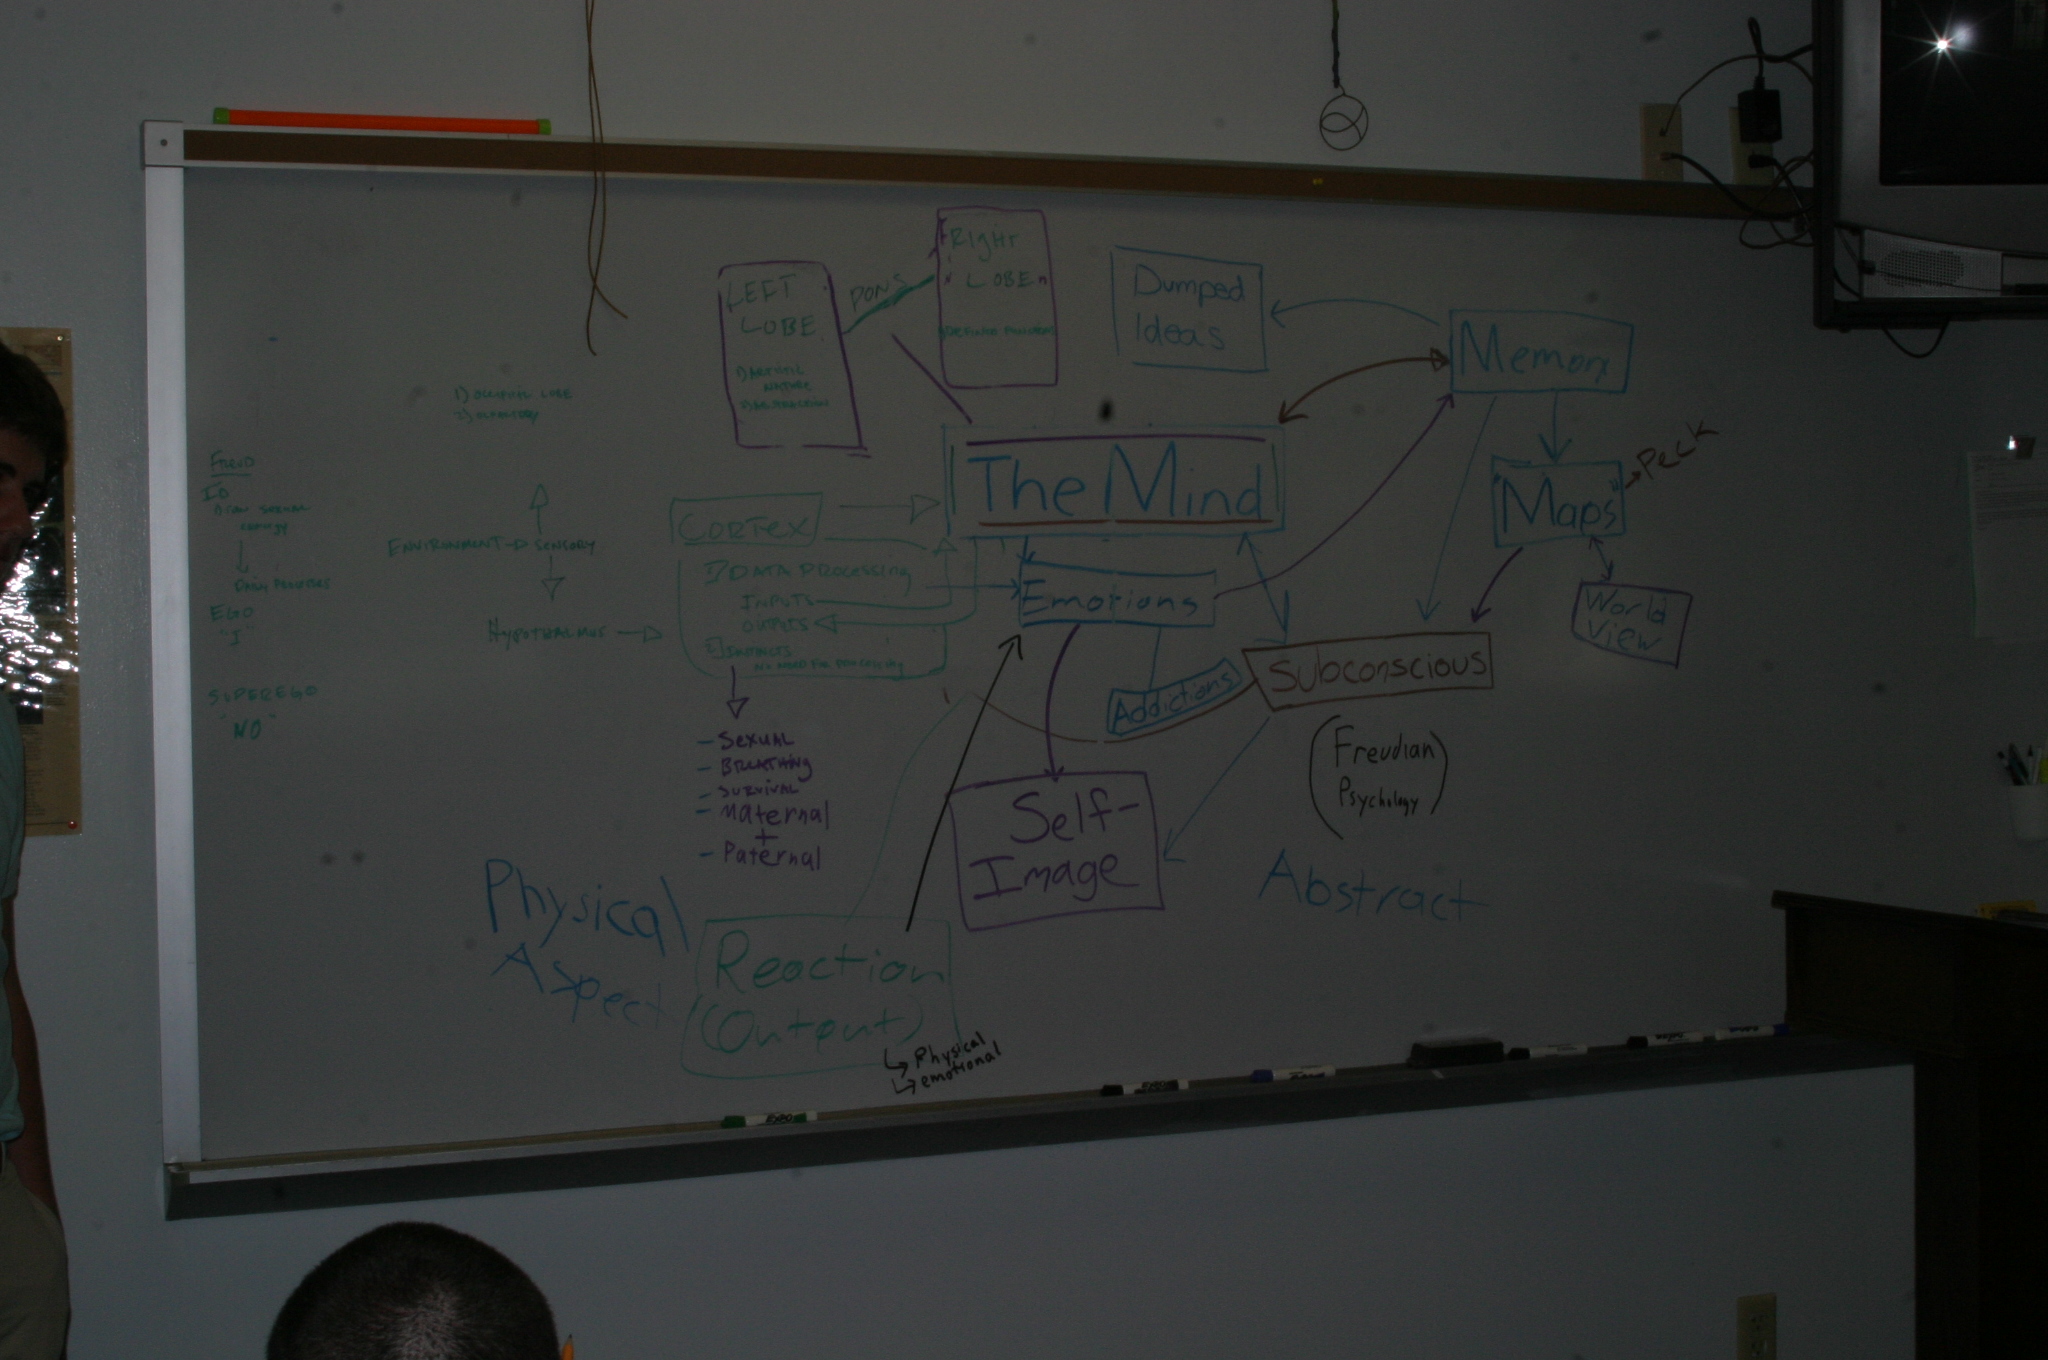 LEFT
LOBE
1) ARTISTIC
NATURE
2) ABSTRACTION
PONS
Right
LOBE
Dumped
Ideas
Memory
"Maps"
Peck
World
View
The Mind
1) OCCIPITAL LOBE
2) OLFACTORY
FREUD
ID
SEXUAL
ENERGY
EGO
"I"
SUPEREGO
"NO"
ENVIRONMENT → SENSORY
HYPOTHALMUS
CORTEX
1) DATA PROCESSING
INPUTS
OUTPUTS
2) INSTINCTS
NO NEED FOR PROCESSING
- Sexual
- BREATHING
- SURVIVAL
- Maternal
+
- Paternal
Emotions
Addictions
Subconscious
(Freudian
Psychology)
Self-
Image
Abstract
Physical
Aspect
Reaction
(Output)
↳ Physical
↳ emotional
EXPO